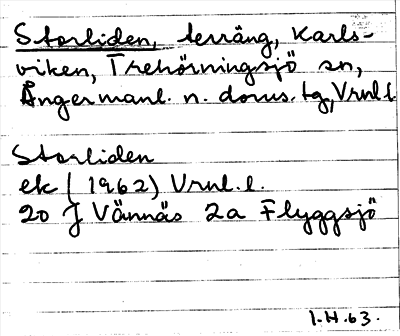 Storliden, terräng, Karls-
viken, Trehörningsjö sn,
Ångermanl. n. doms. tg, Vrnl.l.
Storliden
ek (1962) Vrnl.l.
20 J Vännäs 2a Flyggsjö
I.H.63.